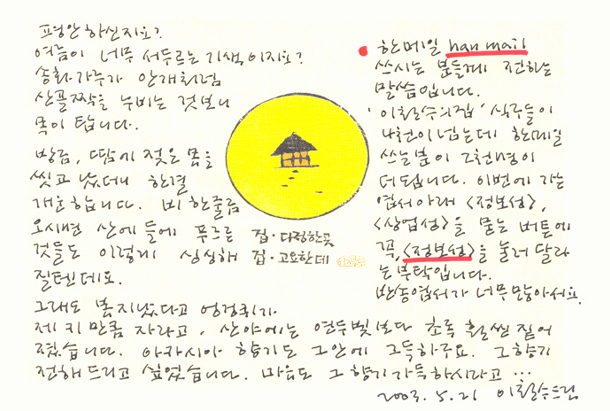 평안하신지요?
여름이 너무 서두르는 기색이지요?
송화가루가 안개처럼
산골짝을 누비는 것보니
목이 탑니다.
바람, 땀에 젖은 몸을
씻고 났더니 한결
개운합니다. 비 한줄금
오시면 산에 들에 푸르른
것들도 이렇게 싱싱해
질텐데요.
그래도 봄 지났다고 엉겅퀴가
제 키 만큼 자라고, 산야에는 연두빛보다 초록 훨씬 짙어
졌습니다. 아카시아 향기도 그 안에 그득하구요. 그 향기
전해드리고 싶었습니다. 마음도 그 향기 가득하시라고 …
2003. 5. 21 이철수 드림
집·다정한 곳
집·고요한데
한메일 han mail
쓰시는 분들께 전하는
말씀입니다.
'이철수의 집' 식구들이
사천이 넘는데 한메일
쓰는 분이 2천명이
더 됩니다. 이번에 가는
엽서 아래 <정보성>,
<상업성>을 묻는 버튼에
꼭, <정보성>을 눌러 달라
는 부탁입니다.
반송엽서가 너무 많아서요.